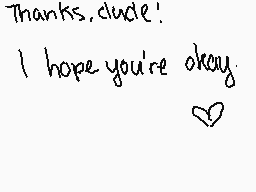 Thanks, dude!
I hope you're okay.